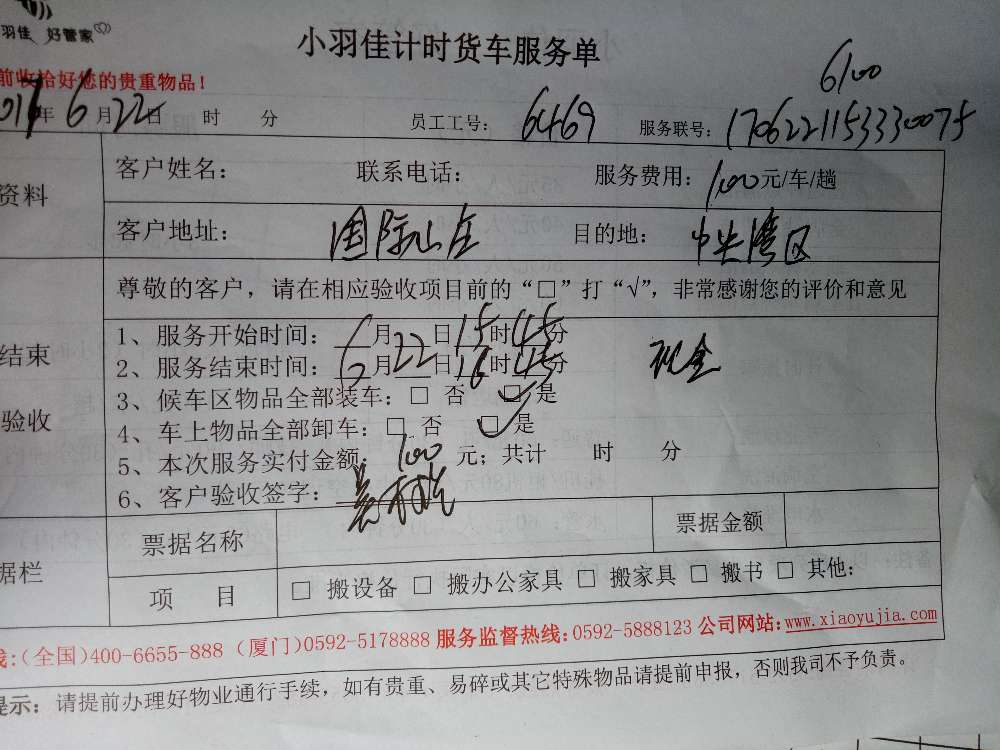 羽佳 好管家
小羽佳计时货车服务单
6100
前收拾好您的贵重物品！
017年6月22日 时 分 员工工号：6469 服务联号：1706221153330075
资料
客户姓名： 联系电话： 服务费用：100元/车/趟
客户地址：国际山庄 目的地：中央湾区
尊敬的客户，请在相应验收项目前的“□”打“√”，非常感谢您的评价和意见
结束
验收
1、服务开始时间：6月22日15时45分
2、服务结束时间：6月22日16时45分 现金
3、候车区物品全部装车：□ 否 □ 是
4、车上物品全部卸车：□ 否 □ 是
5、本次服务实付金额：100 元；共计 时 分
6、客户验收签字：
据栏
票据名称 票据金额
项 目 □ 搬设备 □ 搬办公家具 □ 搬家具 □ 搬书 □ 其他：
线：（全国）400-6655-888（厦门）0592-5178888 服务监督热线：0592-5888123 公司网站：www.xiaoyujia.com
提示：请提前办理好物业通行手续，如有贵重、易碎或其它特殊物品请提前申报，否则我司不予负责。